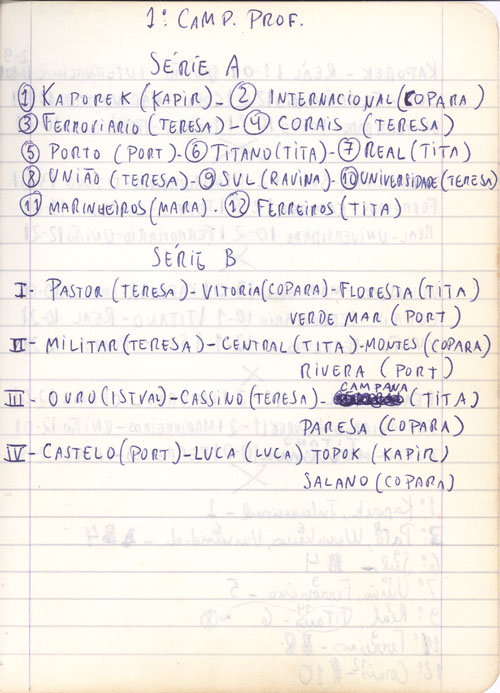 1º CAMP. PROF.
SÉRIE A
① KAPOREK (KAPIR) - ② INTERNACIONAL (COPARA)
③ FERROVIARIO (TERESA) - ④ CORAIS (TERESA)
⑤ PORTO (PORT) - ⑥ TITANO (TITA) - ⑦ REAL (TITA)
⑧ UNIÃO (TERESA) - ⑨ SUL (RAVINA) - ⑩ UNIVERSIDADE (TERESA)
⑪ MARINHEIROS (MARA) - ⑫ FERREIROS (TITA)
SÉRIE B
I - PASTOR (TERESA) - VITORIA (COPARA) - FLORESTA (TITA)
VERDE MAR (PORT)
II - MILITAR (TERESA) - CENTRAL (TITA) - MONTES (COPARA)
RIVERA (PORT)
III - OURO (ISTVAL) - CASSINO (TERESA) - CAMPANA (TITA)
PARESA (COPARA)
IV - CASTELO (PORT) - LUCA (LUCA) TOPOK (KAPIR)
SALANO (COPARA)